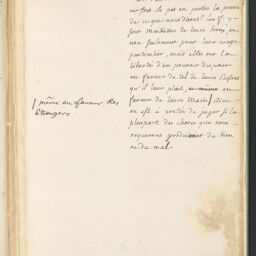 un fort ils pas en partie la preuve
de ce que nous disons? Les f. y
sont maitresses de leurs biens, et
non seulement pour leur usage
particulier, mais elles ont la
liberté d'en pouvoir disposer
en faveur de tel de leurs Enfans
qu'il leur plait, ou même en
faveur de leurs Maris/ Ainsi
on est à portée de juger si la
pluspart des choses que nous
requerons produiroient du bien
ou du mal.
/ même en faveur des
Etrangers